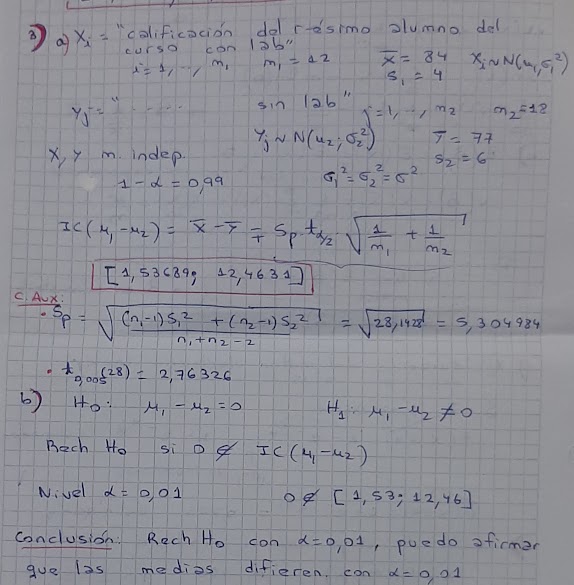 3) a) Xi = "calificación del i-ésimo alumno del
curso con lab"
i=1, .., n1 n1 = 12 x̄ = 84 Xi ~ N(μ1, σ1²)
S1 = 4
Yj = " ..... sin lab" j=1, .., n2 n2=18
Yj ~ N(μ2; σ2²) Ȳ = 77
S2 = 6
X, Y m. indep. σ1² = σ2² = σ²
1 - α = 0,99
IC(μ1 - μ2) = X̄ - Ȳ ∓ Sp. tα/2. √(1/n1 + 1/n2)
[1,53689; 12,4631]
C. Aux:
• Sp = √((n1-1)S1² + (n2-1)S2² / n1+n2-2) = √28,1428 = 5,304984
• t0,005(28) = 2,76326
b) H0: μ1 - μ2 = 0 H1: μ1 - μ2 ≠ 0
Rech H0 si 0 ∉ IC(μ1 - μ2)
Nivel α = 0,01 0 ∉ [1,53; 12,46]
Conclusión: Rech H0 con α=0,01, puedo afirmar
que las medias difieren con α=0,01